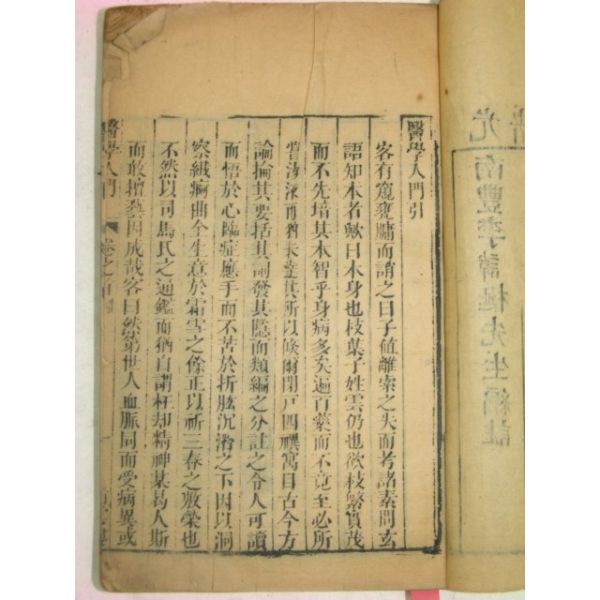 醫學入門引
客有窺甕牖而謂之曰子值離索之失而考諸素問玄
語知本者歟曰木身也枝葉子姓雲仍也欲枝繁實茂
而不先培其本智乎身病多矣遍百藥而不竟至必所
嘗湯液而猶未達其所以候爾閉戶四禩寓目古今方
論掄其要括其詞發其隱而類編之分註之令人可讀
而悟於心臨症應手而不苦於折肱沉潛之下因以洞
察纖痾曲全生意於霜雪之餘正以祈三春之敷榮也
不然以司馬氏之通鑑而猶自謂枉却精神某曷人斯
而敢擅艱因成哉客曰然第世人血脈同而受病異或
醫學入門 卷之首
南豐李 先生編註